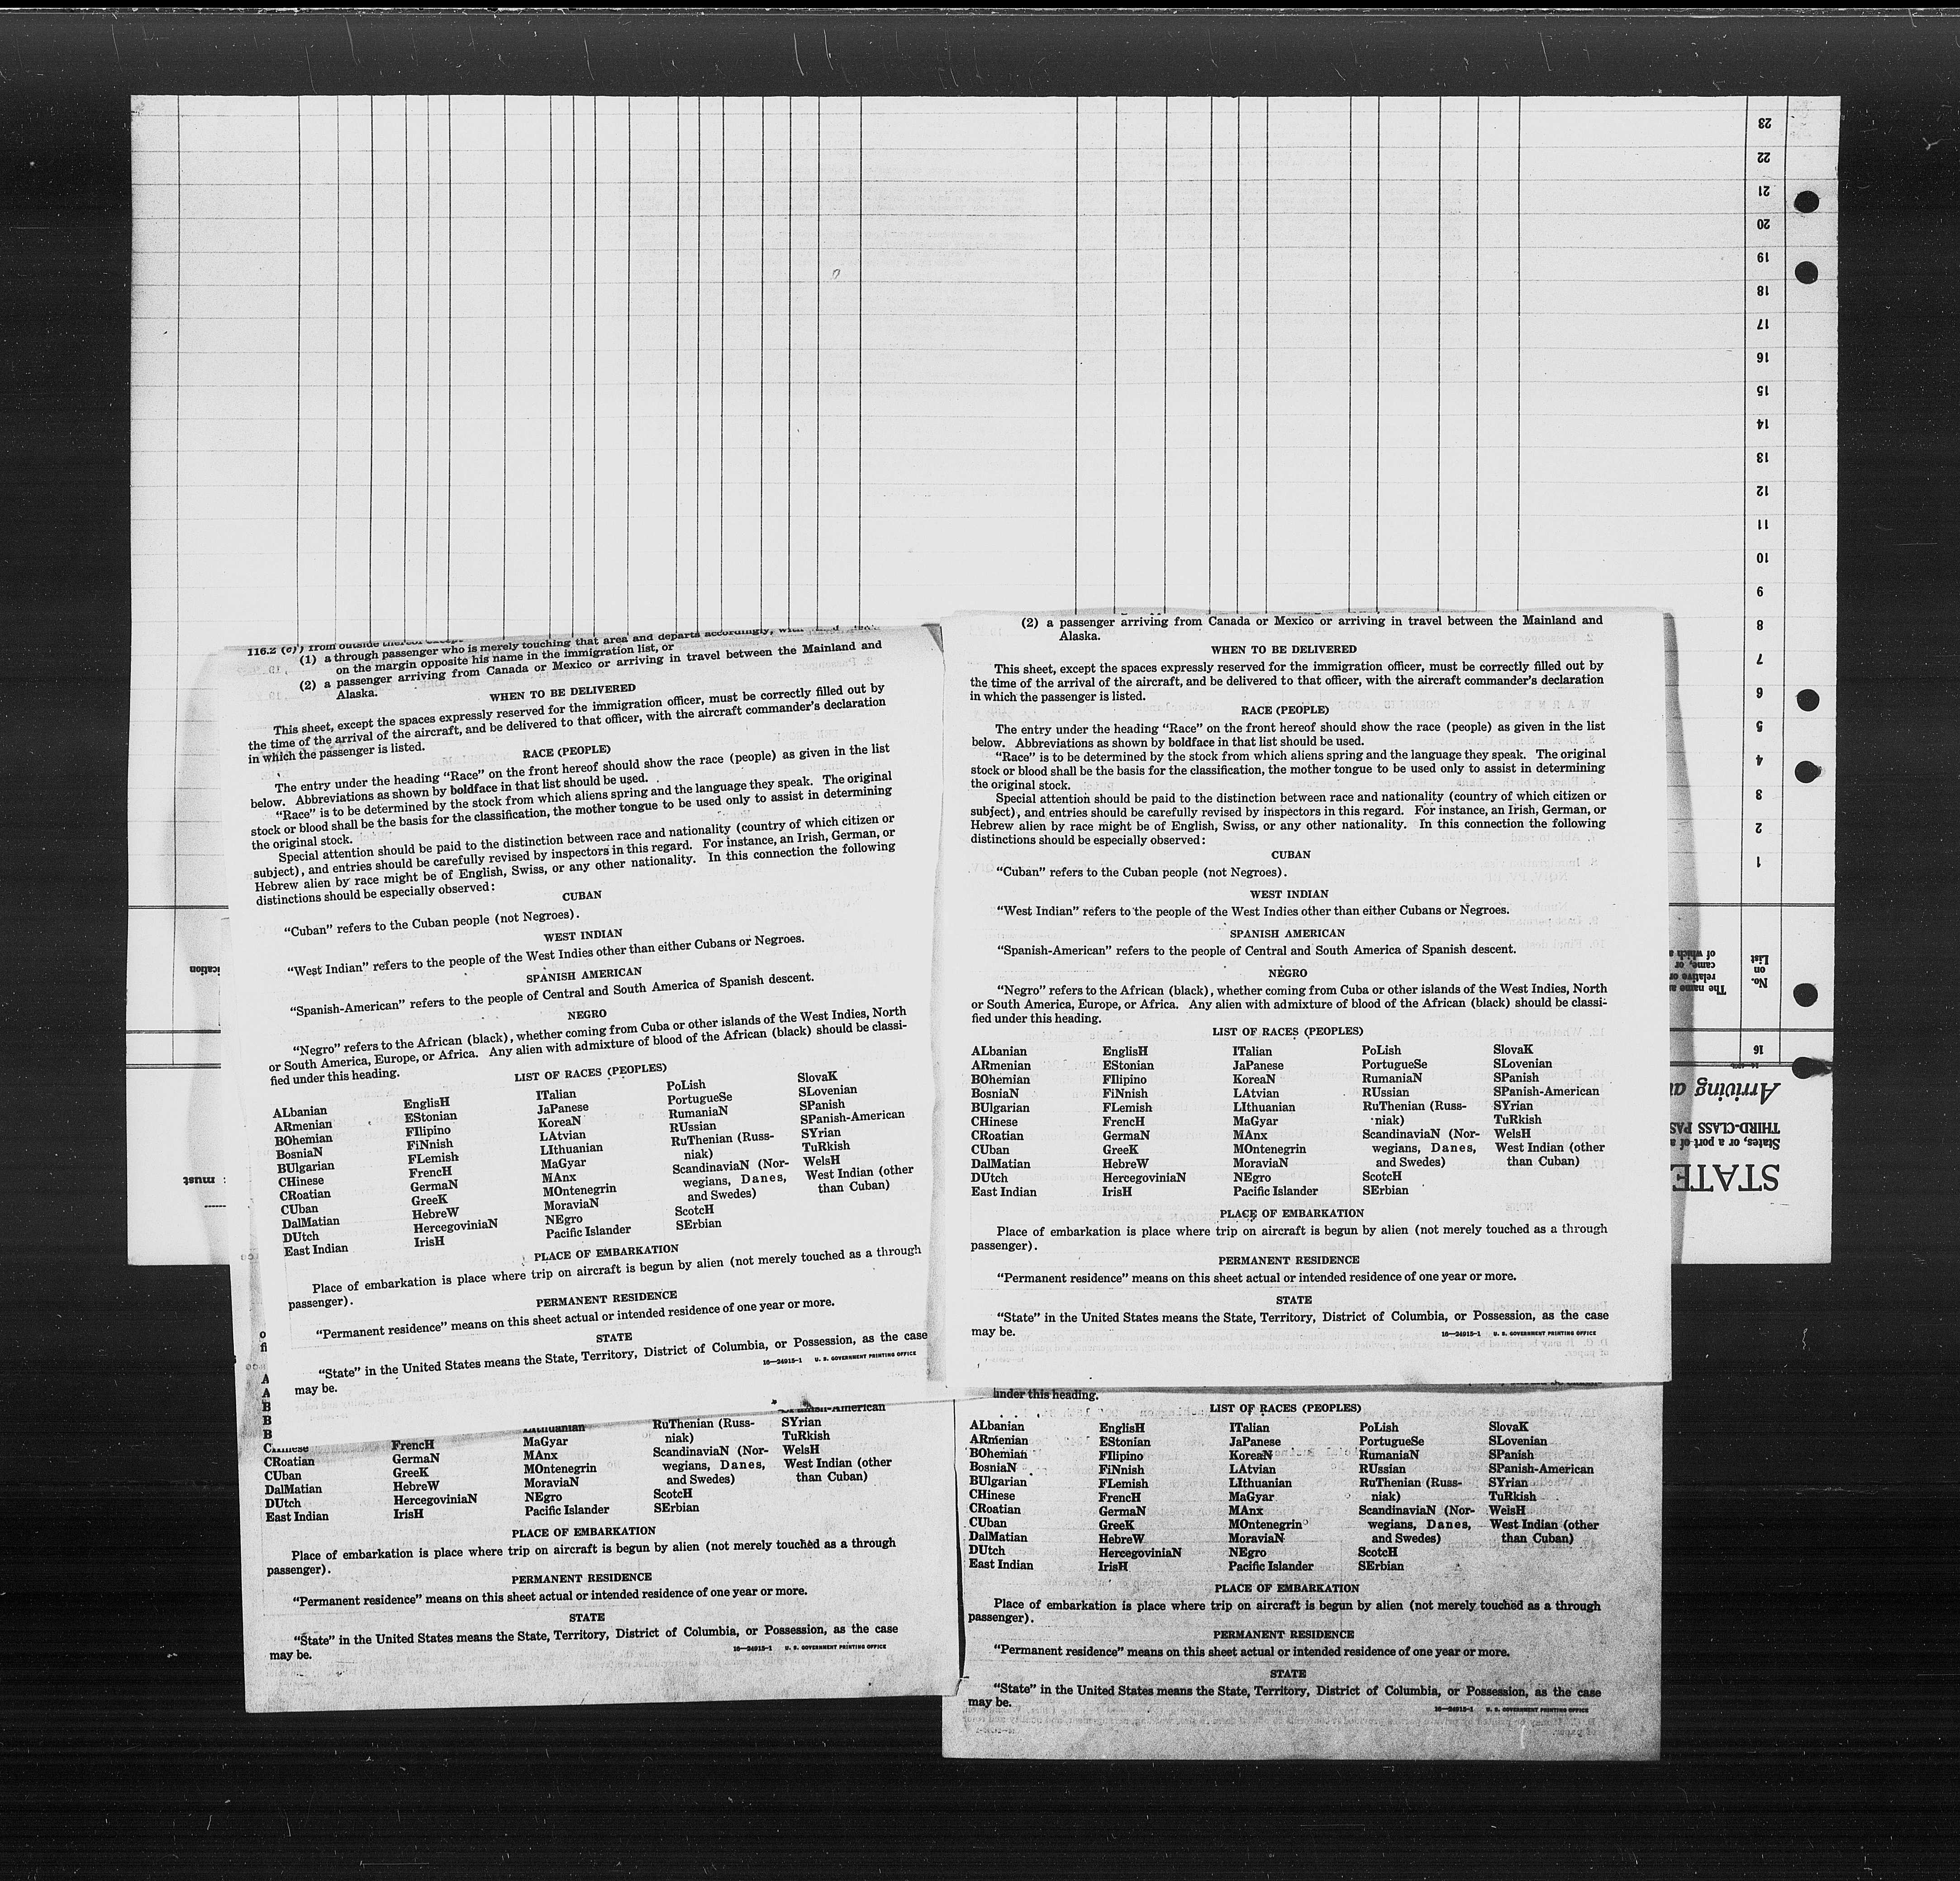 23
22
21
20
19
18
17
16
15
14
13
12
11
10
9
8
7
6
5
4
3
2
1
No.
on
List
16
The name a
relative or
came, or
of which a
STATE
States, or a port of a
THIRD-CLASS PAS
Arriving a
ication
must
(1) a through passenger who is merely touching that area and departs accordingly,
on the margin opposite his name in the immigration list, or
(2) a passenger arriving from Canada or Mexico or arriving in travel between the Mainland and
Alaska.
WHEN TO BE DELIVERED
This sheet, except the spaces expressly reserved for the immigration officer, must be correctly filled out by
the time of the arrival of the aircraft, and be delivered to that officer, with the aircraft commander's declaration
in which the passenger is listed.
RACE (PEOPLE)
The entry under the heading "Race" on the front hereof should show the race (people) as given in the list
below. Abbreviations as shown by boldface in that list should be used.
"Race" is to be determined by the stock from which aliens spring and the language they speak. The original
stock or blood shall be the basis for the classification, the mother tongue to be used only to assist in determining
the original stock.
Special attention should be paid to the distinction between race and nationality (country of which citizen or
subject), and entries should be carefully revised by inspectors in this regard. For instance, an Irish, German, or
Hebrew alien by race might be of English, Swiss, or any other nationality. In this connection the following
distinctions should be especially observed:
CUBAN
"Cuban" refers to the Cuban people (not Negroes).
WEST INDIAN
"West Indian" refers to the people of the West Indies other than either Cubans or Negroes.
SPANISH AMERICAN
"Spanish-American" refers to the people of Central and South America of Spanish descent.
NEGRO
"Negro" refers to the African (black), whether coming from Cuba or other islands of the West Indies, North
or South America, Europe, or Africa. Any alien with admixture of blood of the African (black) should be classi-
fied under this heading.
LIST OF RACES (PEOPLES)
ALbanian
ARmenian
BOhemian
BosniaN
BUlgarian
CHinese
CRoatian
CUban
DalMatian
DUtch
East Indian
EnglisH
EStonian
FIlipino
FiNnish
FLemish
FrencH
GermaN
GreeK
HebreW
HercegoviniaN
IrisH
ITalian
JaPanese
KoreaN
LAtvian
LIthuanian
MaGyar
MAnx
MOntenegrin
MoraviaN
NEgro
Pacific Islander
PoLish
PortugueSe
RumaniaN
RUssian
RuThenian (Russ-
niak)
ScandinaviaN (Nor-
wegians, Danes,
and Swedes)
ScotcH
SErbian
SlovaK
SLovenian
SPanish
SPanish-American
SYrian
TuRkish
WelsH
West Indian (other
than Cuban)
PLACE OF EMBARKATION
Place of embarkation is place where trip on aircraft is begun by alien (not merely touched as a through
passenger).
PERMANENT RESIDENCE
"Permanent residence" means on this sheet actual or intended residence of one year or more.
STATE
"State" in the United States means the State, Territory, District of Columbia, or Possession, as the case
may be.
16—24915-1 U. S. GOVERNMENT PRINTING OFFICE
(2) a passenger arriving from Canada or Mexico or arriving in travel between the Mainland and
Alaska.
WHEN TO BE DELIVERED
This sheet, except the spaces expressly reserved for the immigration officer, must be correctly filled out by
the time of the arrival of the aircraft, and be delivered to that officer, with the aircraft commander's declaration
in which the passenger is listed.
RACE (PEOPLE)
The entry under the heading "Race" on the front hereof should show the race (people) as given in the list
below. Abbreviations as shown by boldface in that list should be used.
"Race" is to be determined by the stock from which aliens spring and the language they speak. The original
stock or blood shall be the basis for the classification, the mother tongue to be used only to assist in determining
the original stock.
Special attention should be paid to the distinction between race and nationality (country of which citizen or
subject), and entries should be carefully revised by inspectors in this regard. For instance, an Irish, German, or
Hebrew alien by race might be of English, Swiss, or any other nationality. In this connection the following
distinctions should be especially observed:
CUBAN
"Cuban" refers to the Cuban people (not Negroes).
WEST INDIAN
"West Indian" refers to the people of the West Indies other than either Cubans or Negroes.
SPANISH AMERICAN
"Spanish-American" refers to the people of Central and South America of Spanish descent.
NEGRO
"Negro" refers to the African (black), whether coming from Cuba or other islands of the West Indies, North
or South America, Europe, or Africa. Any alien with admixture of blood of the African (black) should be classi-
fied under this heading.
LIST OF RACES (PEOPLES)
ALbanian
ARmenian
BOhemian
BosniaN
BUlgarian
CHinese
CRoatian
CUban
DalMatian
DUtch
East Indian
EnglisH
EStonian
FIlipino
FiNnish
FLemish
FrencH
GermaN
GreeK
HebreW
HercegoviniaN
IrisH
ITalian
JaPanese
KoreaN
LAtvian
LIthuanian
MaGyar
MAnx
MOntenegrin
MoraviaN
NEgro
Pacific Islander
PoLish
PortugueSe
RumaniaN
RUssian
RuThenian (Russ-
niak)
ScandinaviaN (Nor-
wegians, Danes,
and Swedes)
ScotcH
SErbian
SlovaK
SLovenian
SPanish
SPanish-American
SYrian
TuRkish
WelsH
West Indian (other
than Cuban)
PLACE OF EMBARKATION
Place of embarkation is place where trip on aircraft is begun by alien (not merely touched as a through
passenger).
PERMANENT RESIDENCE
"Permanent residence" means on this sheet actual or intended residence of one year or more.
STATE
"State" in the United States means the State, Territory, District of Columbia, or Possession, as the case
may be.
16—24915-1 U. S. GOVERNMENT PRINTING OFFICE
o
fi
A
A
B
B
B
CHinese
CRoatian
CUban
DalMatian
DUtch
East Indian
FrencH
GermaN
GreeK
HebreW
HercegoviniaN
IrisH
LIthuanian
MaGyar
MAnx
MOntenegrin
MoraviaN
NEgro
Pacific Islander
RuThenian (Russ-
niak)
ScandinaviaN (Nor-
wegians, Danes,
and Swedes)
ScotcH
SErbian
SPanish-American
SYrian
TuRkish
WelsH
West Indian (other
than Cuban)
PLACE OF EMBARKATION
Place of embarkation is place where trip on aircraft is begun by alien (not merely touched as a through
passenger).
PERMANENT RESIDENCE
"Permanent residence" means on this sheet actual or intended residence of one year or more.
STATE
"State" in the United States means the State, Territory, District of Columbia, or Possession, as the case
may be.
16—24915-1 U. S. GOVERNMENT PRINTING OFFICE
under this heading.
LIST OF RACES (PEOPLES)
ALbanian
ARmenian
BOhemian
BosniaN
BUlgarian
CHinese
CRoatian
CUban
DalMatian
DUtch
East Indian
EnglisH
EStonian
FIlipino
FiNnish
FLemish
FrencH
GermaN
GreeK
HebreW
HercegoviniaN
IrisH
ITalian
JaPanese
KoreaN
LAtvian
LIthuanian
MaGyar
MAnx
MOntenegrin
MoraviaN
NEgro
Pacific Islander
PoLish
PortugueSe
RumaniaN
RUssian
RuThenian (Russ-
niak)
ScandinaviaN (Nor-
wegians, Danes,
and Swedes)
ScotcH
SErbian
SlovaK
SLovenian
SPanish
SPanish-American
SYrian
TuRkish
WelsH
West Indian (other
than Cuban)
PLACE OF EMBARKATION
Place of embarkation is place where trip on aircraft is begun by alien (not merely touched as a through
passenger).
PERMANENT RESIDENCE
"Permanent residence" means on this sheet actual or intended residence of one year or more.
STATE
"State" in the United States means the State, Territory, District of Columbia, or Possession, as the case
may be.
16—24915-1 U. S. GOVERNMENT PRINTING OFFICE